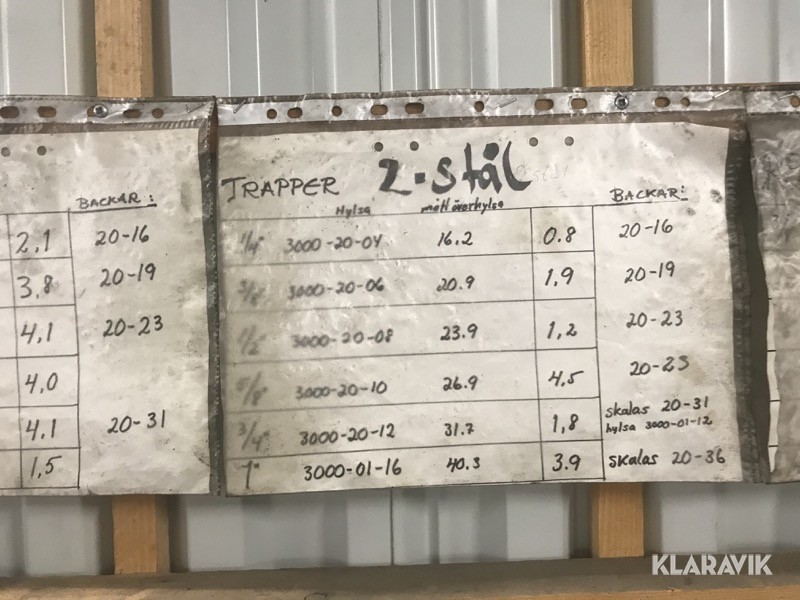 BACKAR:
2,1 20-16
3,8 20-19
4,1 20-23
4,0
4,1 20-31
1,5
TRAPPER 2-stål
Hylsa mått överhylsa BACKAR:
1/4" 3000-20-04 16.2 0.8 20-16
3/8" 3000-20-06 20.9 1,9 20-19
1/2" 3000-20-08 23.9 1,2 20-23
5/8" 3000-20-10 26.9 4,5 20-23
3/4" 3000-20-12 31.7 1,8 skalas 20-31
hylsa 3000-01-12
1" 3000-01-16 40.3 3.9 skalas 20-36
KLARAVIK